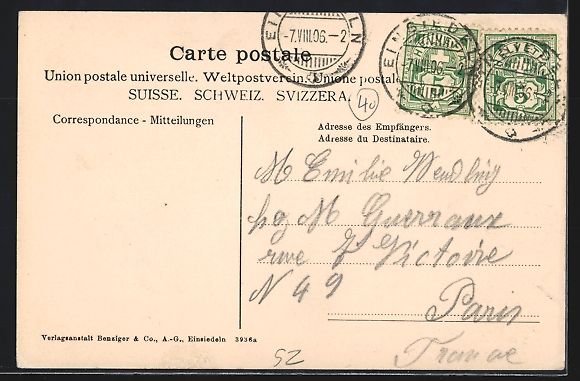 EINSIEDELN
-7.VIII.06.-2
Carte postale
Union postale universelle. Weltpostverein. Unione postale
SUISSE. SCHWEIZ. SVIZZERA.
40
EINSIEDELN
HELVETIA
5
5
Correspondance - Mitteilungen
Adresse des Empfängers.
Adresse du Destinataire.
M Emilie Wendling
M Guerraux
rue Victoire
N 49
Paris
France
Verlagsanstalt Benziger & Co., A.-G., Einsiedeln 3936a
52